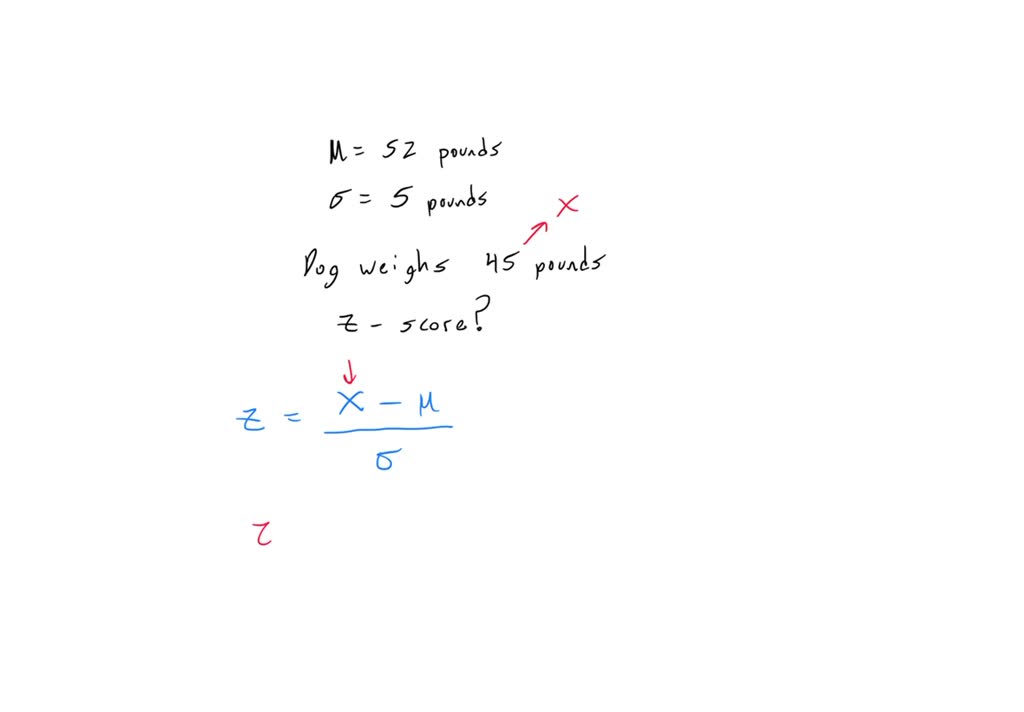 μ = 52 pounds
σ = 5 pounds
x
Dog weighs 45 pounds
z - score?
z = x - μ
σ
z